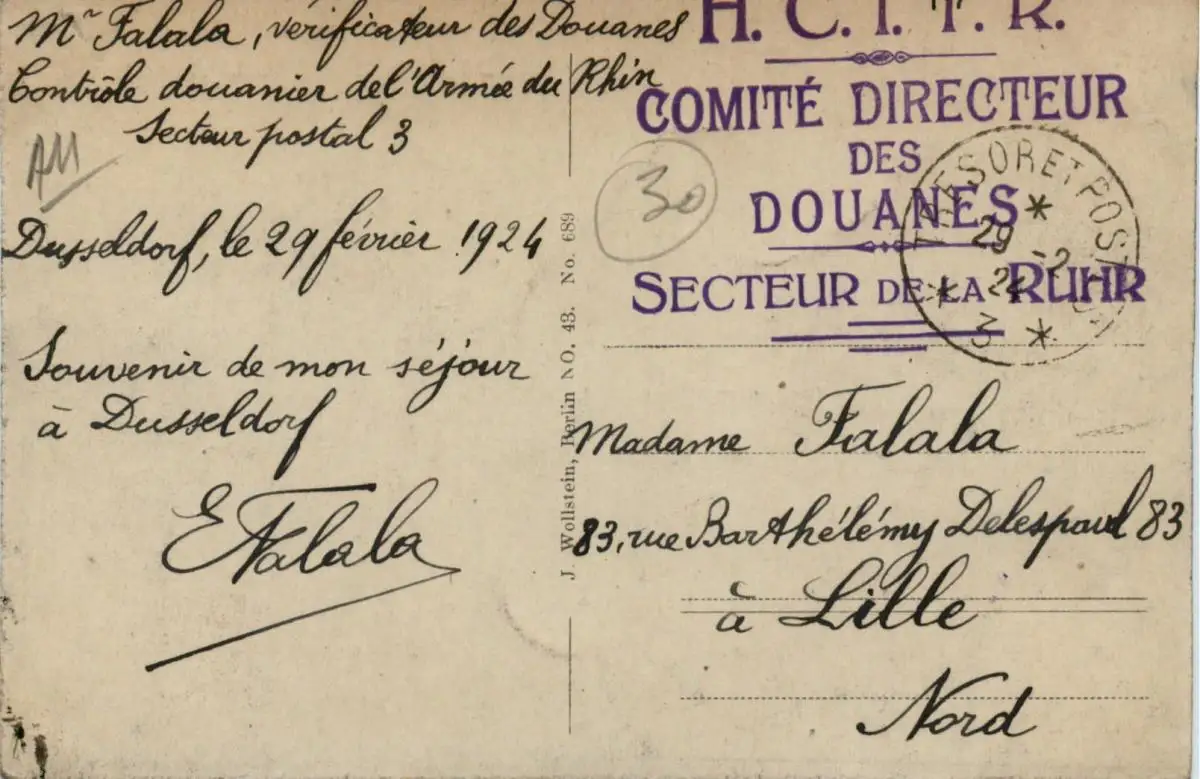 Mr Falala, vérificateur des Douanes
Contrôle douanier de l'Armée du Rhin
Secteur postal 3
Dusseldorf, le 29 février 1924
Souvenir de mon séjour
à Dusseldorf
E Falala
J. Wollstein, Berlin NO. 43. No. 689
30
H. C. I. T. R.
COMITÉ DIRECTEUR
DES
DOUANES
SECTEUR DE LA RUHR
TRESOR ET POSTES
29 -2
24
3
Madame Falala
83, rue Barthélémy Delespaul 83
à Lille
Nord